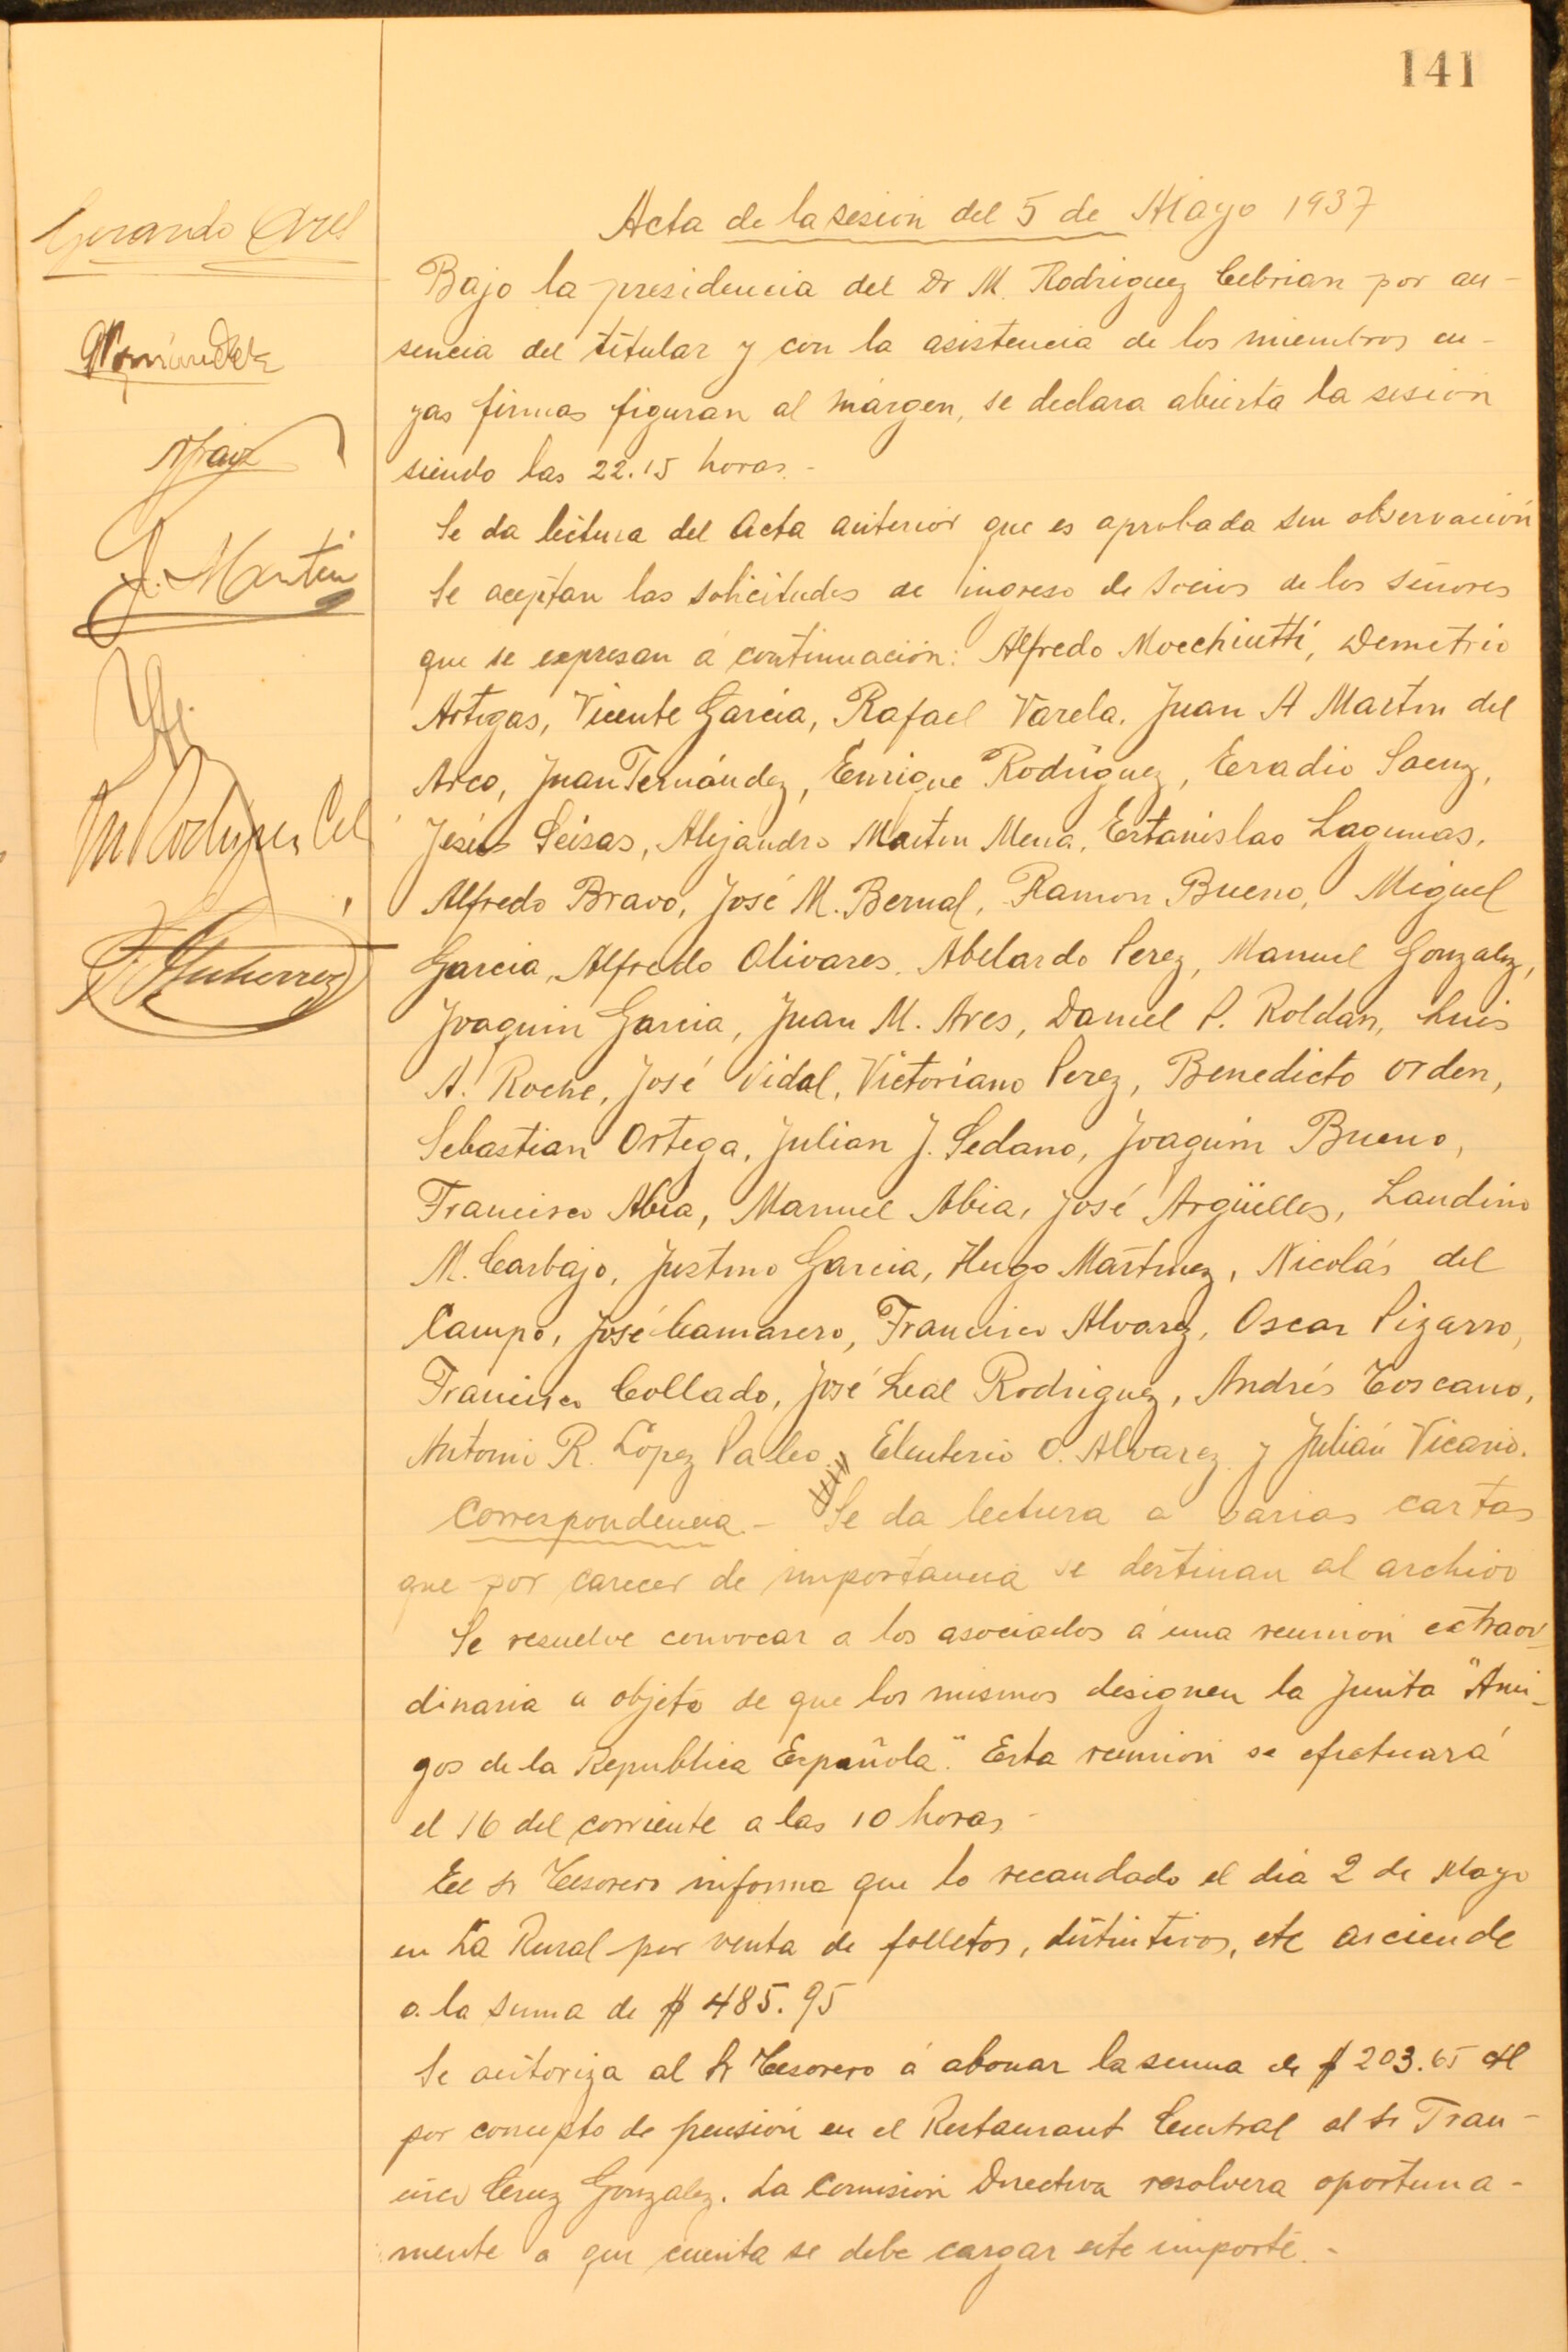 141
Acta de la sesión del 5 de Mayo 1937
Gerardo Ares
Bajo la presidencia del Dr M. Rodriguez Cebrian por au-
sencia del titular y con la asistencia de los miembros cu-
yas firmas figuran al márgen, se declara abierta la sesión
siendo las 22.15 horas.-
Se da lectura del Acta anterior que es aprobada sin observación
J. Martin
Se aceptan las solicitudes de ingreso de socios de los señores
que se expresan á continuación: Alfredo Mocchiutti, Demetrio
Artigas, Vicente Garcia, Rafael Varela, Juan A Martin del
Arco, Juan Fernández, Enrique Rodriguez, Eradio Saenz,
M Rodriguez Ceb
Jesús Seisas, Alejandro Martin Mena, Estanislao Lagunas,
Alfredo Bravo, José M. Bernal, Ramon Bueno, Miguel
F. Gutierrez
Garcia, Alfredo Olivares, Abelardo Perez, Manuel Gonzalez,
Joaquin Garcia, Juan M. Ares, Daniel P. Roldán, Luis
A. Roche, José Vidal, Victoriano Perez, Benedicto Orden,
Sebastian Ortega, Julian J. Sedano, Joaquin Bueno,
Francisco Abia, Manuel Abia, José Argüelles, Landino
M. Carbajo, Justino Garcia, Hugo Martinez, Nicolás del
Campo, José Camarero, Francisco Alvarez, Oscar Pizarro,
Francisco Collado, José Leal Rodriguez, Andrés Toscano,
Antonio R. López Paleo, Eleuterio O. Alvarez y Julián Vicario.
Correspondencia.- Se da lectura a varias cartas
que por carecer de importancia se destinan al archivo
Se resuelve convocar a los asociados á una reunión extraor-
dinaria a objeto de que los mismos designen la Junta "Ami-
gos de la Republica Española". Esta reunion se efectuará
el 16 del corriente a las 10 horas -
El Sr Tesorero informa que lo recaudado el dia 2 de Mayo
en La Rural por venta de folletos, distintivos, etc asciende
a la suma de $ 485.95
Se autoriza al Sr Tesorero á abonar la suma de $ 203.65
por concepto de pensión en el Restaurant Central al Sr Fran-
cisco Cruz Gonzalez. La Comisión Directiva resolvera oportuna-
mente a que cuenta se debe cargar este importe.-